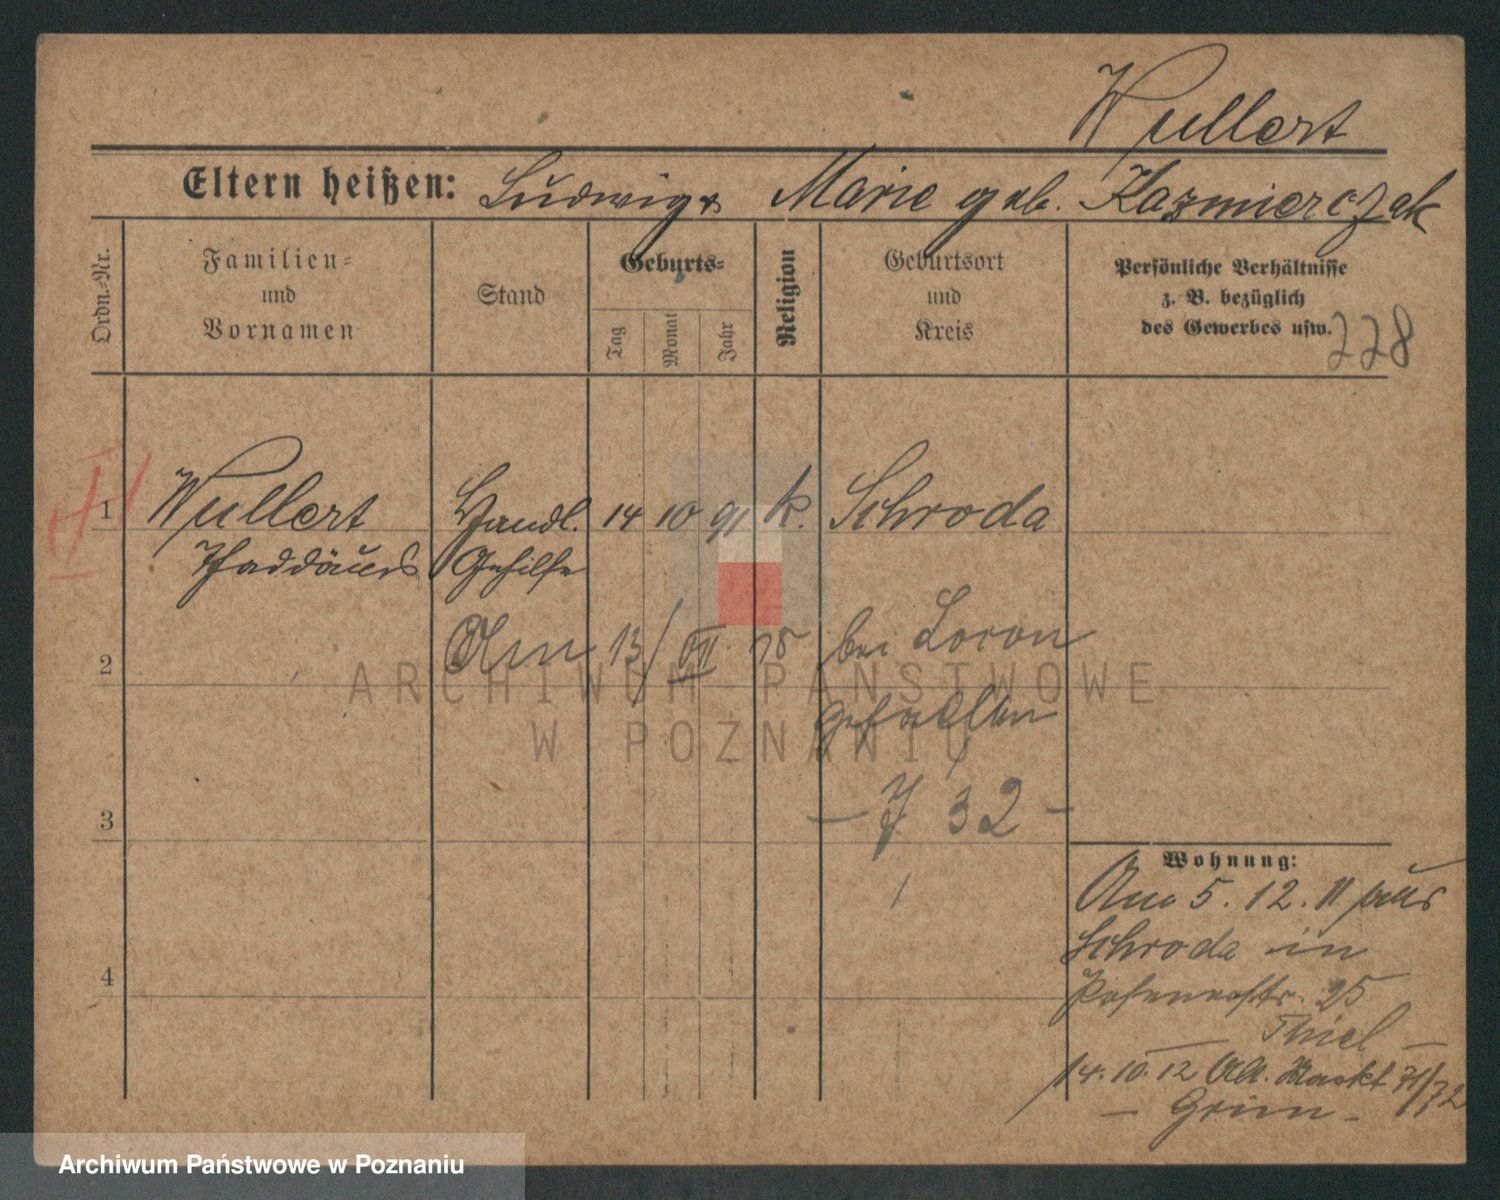 Wullert
Eltern heißen: Ludwig & Marie geb. Kazmierczak
Ordn.-Nr.
Familien-
und
Vornamen
Stand
Geburts-
Tag
Monat
Jahr
Religion
Geburtsort
und
Kreis
Persönliche Verhältnisse
z. B. bezüglich
des Gewerbes usw.
228
1 Wullert Handl. 14 10 91 k. Schroda
Thaddäus Gehilfe
2 Am 13/VII 15 bei
gefallen
3 - J 32 -
Wohnung:
Am 5. 12. 11 aus
Schroda in
Posenerstr. 25
Thiel -
4
14. 10. 12 Alt. Markt 71/72
- Grim -
ARCHIWUM PAŃSTWOWE
W POZNANIU
Archiwum Państwowe w Poznaniu